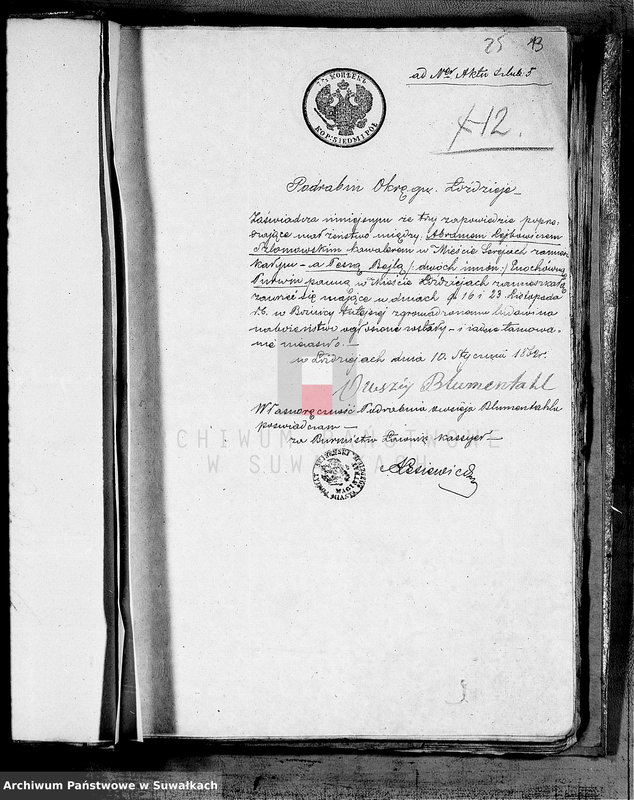 25 13
ad Nro Aktu Szlub. 5
7½ КОПѢЕКЪ
KOP. SIEDM I PÓŁ
4-12.
Podrabin Okręgu Łoździeje
Zaświadcza niniejszym że try zapowiedzie poprze-
dzające małżeństwo między Abramem Lejbowiczem
Szlomowskim kawalerem w Mieście Serejach zamiesz-
kałym – a Peszą Bejlą /: dwóch imion :/ Enochówną
panną w Mieście Łoździejach zamieszkałą
zawrzeć się mające w dniach 9, 16 i 23 Listopada
r.b. w Bożnicy tutejszej zgromadzonemu ludowi na
nabożeństwo ogłoszone zostały – i żadne tamowa-
nie niezaszło. –
w Łoździejach dnia 10. Stycznia
Blumentahl
Własnoręczność Podrabina Blumentahla
poświadczam –
za Burmistrza Ławnik kassyer –
ARCHIWUM PAŃSTWOWE
W SUWAŁKACH
Archiwum Państwowe w Suwałkach